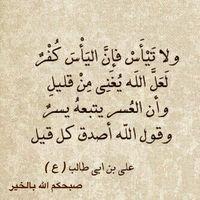 ولا تَيْأَسْ فإنَّ اليَأْسَ كُفْرٌ
لَعَلَّ اللَه يُغْنِى مِنْ قليلِ
وأن العُسر يتبعهُ يسرٌ
وقول اللّه أصدق كل قيل
على بن ابى طالب ( ع )
صبحكم الله بالخير